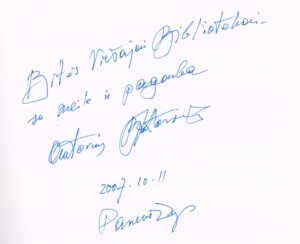 Bitės Viešajai Bibliotekai -
su meile ir pagarba
Autorius
2007-10-11
Panevėžys